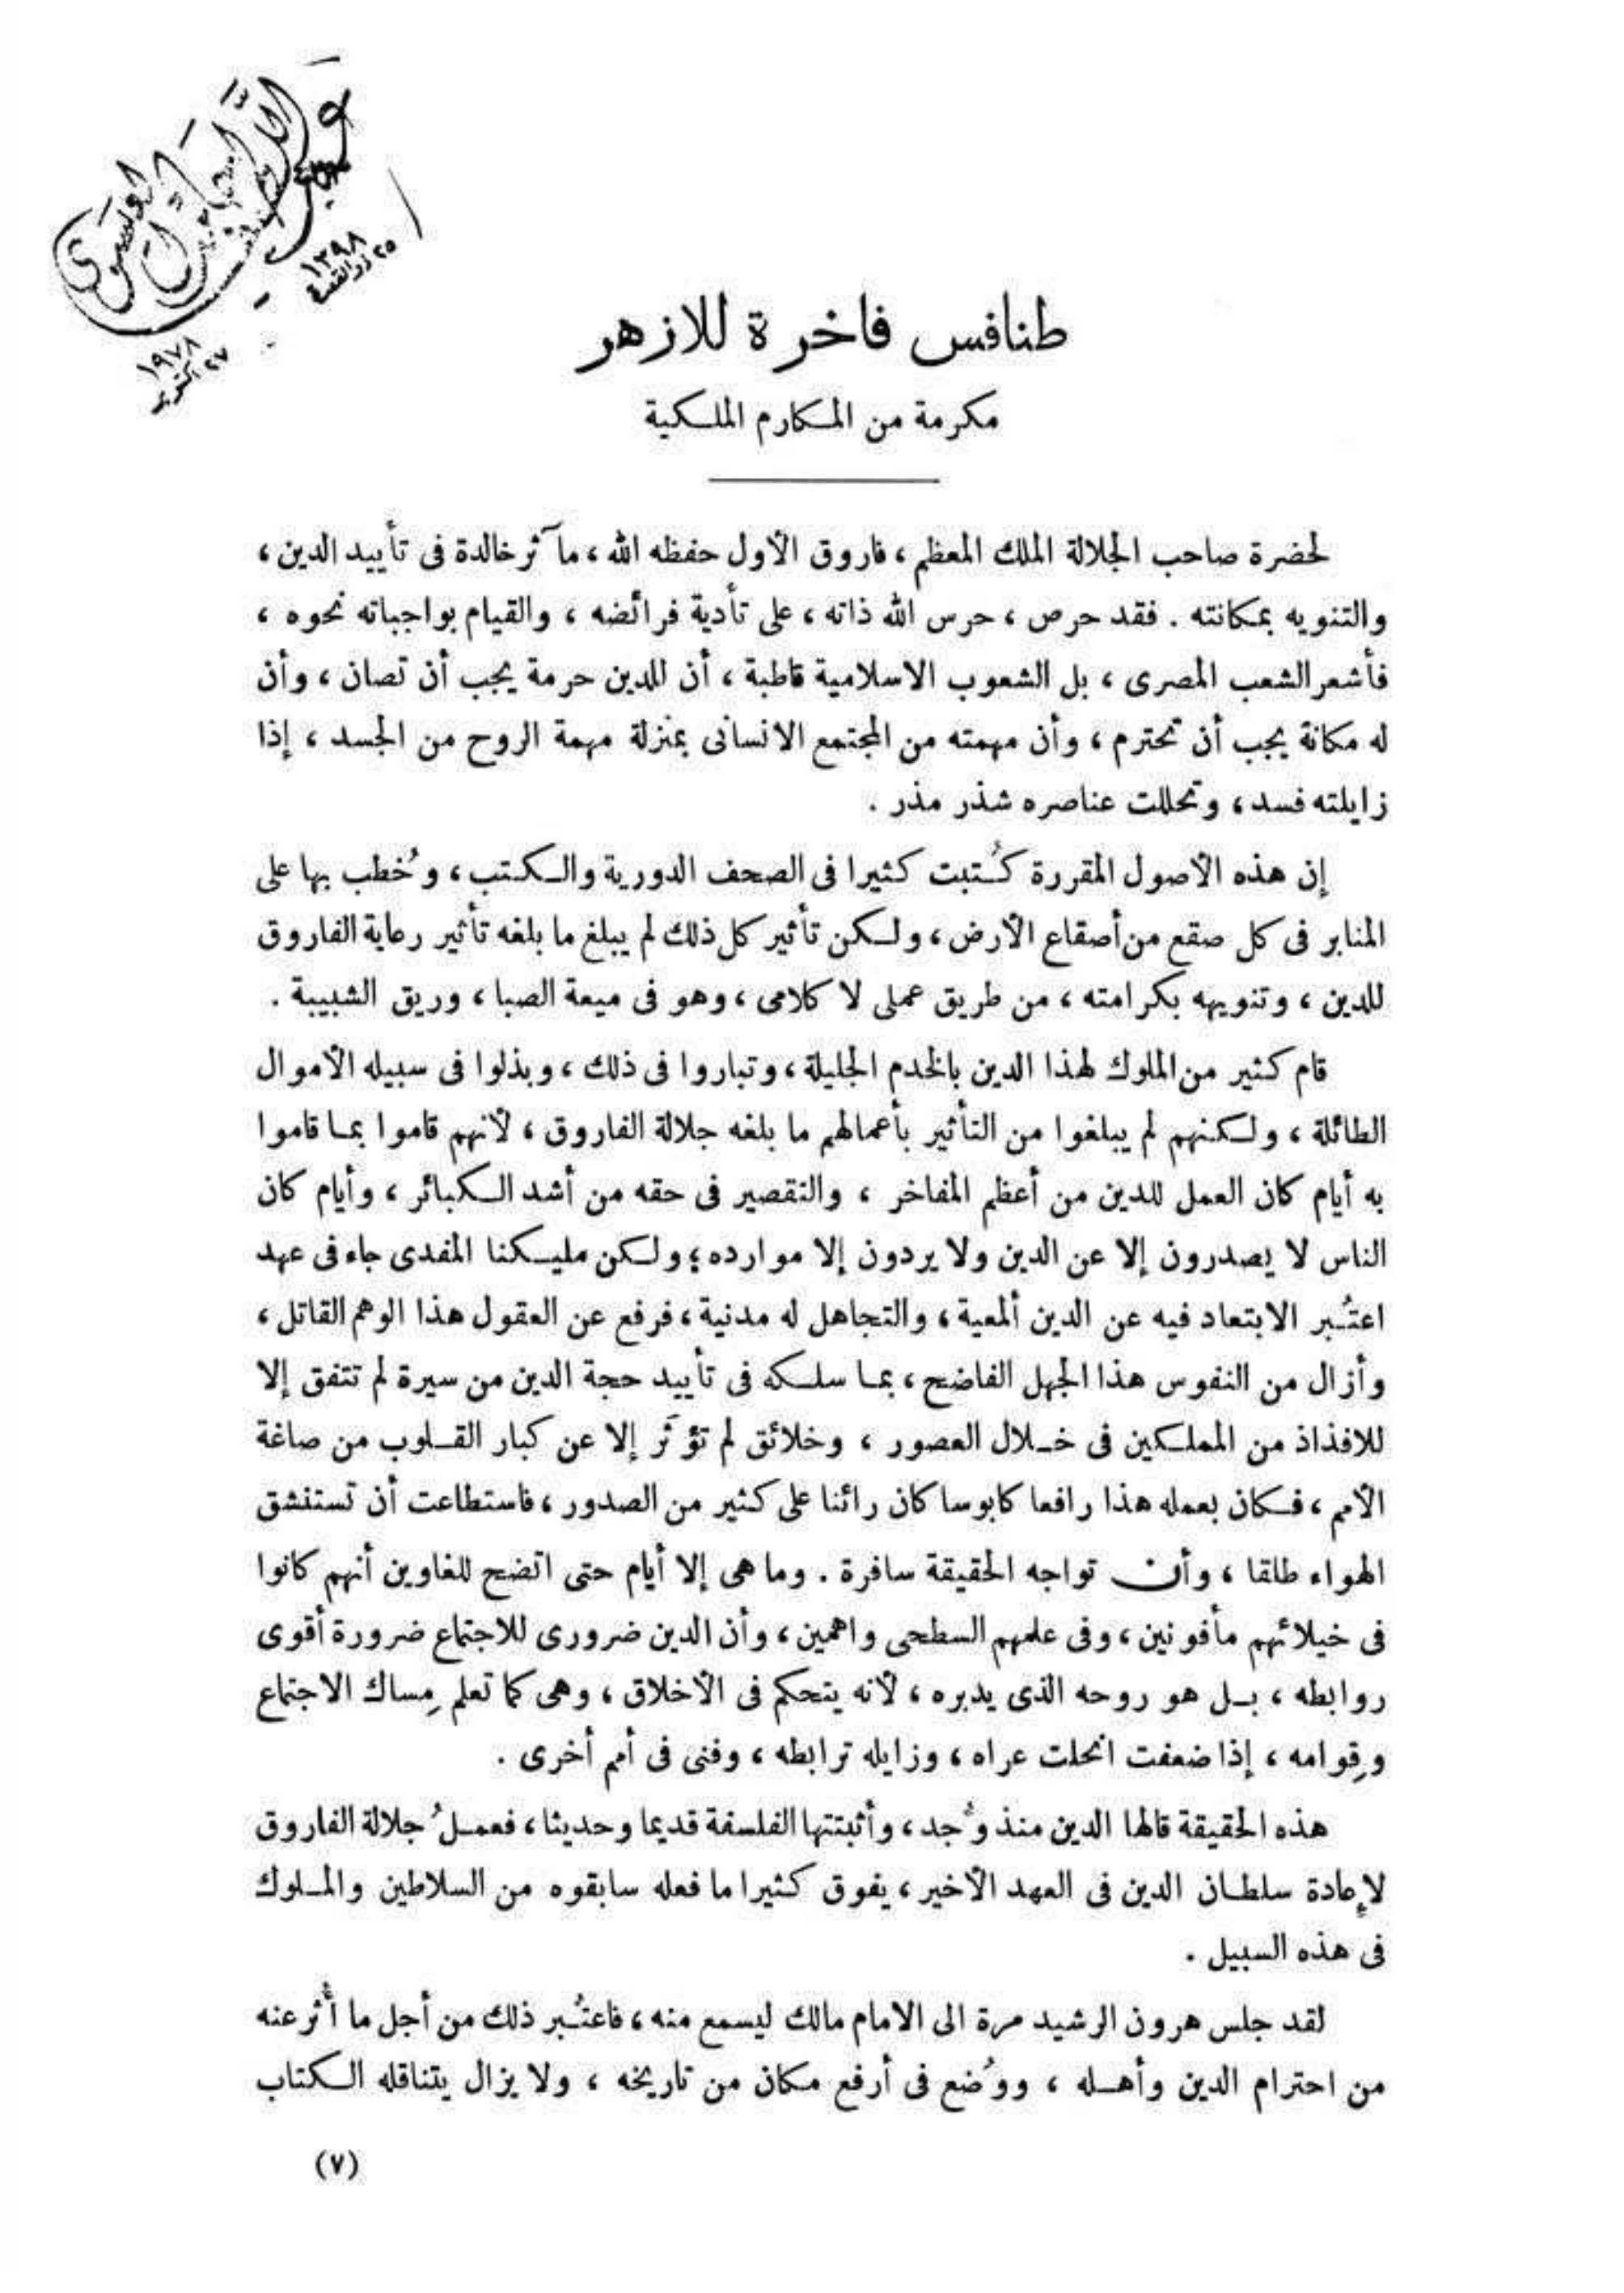 ١٣٩٨
٢٥ ذوالقعدة
١٩٧٨
٢٧
طنافس فاخرة للازهر
مكرمة من المكارم الملكية
لحضرة صاحب الجلالة الملك المعظم، فاروق الأول حفظه الله، مآثر خالدة فى تأييد الدين،
والتنويه بمكانته. فقد حرص، حرس الله ذاته، على تأدية فرائضه، والقيام بواجباته نحوه،
فأشعر الشعب المصرى، بل الشعوب الاسلامية قاطبة، أن للدين حرمة يجب أن تصان، وأن
له مكانة يجب أن تحترم، وأن مهمته من المجتمع الانسانى بمنزلة مهمة الروح من الجسد، إذا
زايلته فسد، وتحللت عناصره شذر مذر.
إن هذه الأصول المقررة كُتبت كثيرا فى الصحف الدورية والكتب، وخُطب بها على
المنابر فى كل صقع من أصقاع الأرض، ولكن تأثير كل ذلك لم يبلغ ما بلغه تأثير رعاية الفاروق
للدين، وتنويهه بكرامته، من طريق عملى لا كلامى، وهو فى ميعة الصبا، وريق الشبيبة.
قام كثير من الملوك لهذا الدين بالخدم الجليلة، وتباروا فى ذلك، وبذلوا فى سبيله الأموال
الطائلة، ولكنهم لم يبلغوا من التأثير بأعمالهم ما بلغه جلالة الفاروق، لأنهم قاموا بما قاموا
به أيام كان العمل للدين من أعظم المفاخر، والتقصير فى حقه من أشد الكبائر، وأيام كان
الناس لا يصدرون إلا عن الدين ولا يردون إلا موارده؛ ولكن مليكنا المفدى جاء فى عهد
اعتُبر الابتعاد فيه عن الدين ألمعية، والتجاهل له مدنية، فرفع عن العقول هذا الوهم القاتل،
وأزال من النفوس هذا الجهل الفاضح، بما سلكه فى تأييد حجة الدين من سيرة لم تتفق إلا
للافذاذ من المملكين فى خلال العصور، وخلائق لم تؤثَر إلا عن كبار القلوب من صاغة
الأمم، فكان بعمله هذا رافعا كابوسا كان رائنا على كثير من الصدور، فاستطاعت أن تستنشق
الهواء طلقا، وأن تواجه الحقيقة سافرة. وما هى إلا أيام حتى اتضح للغاوين أنهم كانوا
فى خيلائهم مأفونين، وفى علمهم السطحى واهمين، وأن الدين ضرورى للاجتماع ضرورة أقوى
روابطه، بل هو روحه الذى يدبره، لأنه يتحكم فى الأخلاق، وهى كما تعلم مِساك الاجتماع
وقِوامه، إذا ضعفت انحلت عراه، وزايله ترابطه، وفنى فى أمم أخرى.
هذه الحقيقة قالها الدين منذ وُجد، وأثبتتها الفلسفة قديما وحديثا، فعملُ جلالة الفاروق
لإعادة سلطان الدين فى العهد الأخير، يفوق كثيرا ما فعله سابقوه من السلاطين والملوك
فى هذه السبيل.
لقد جلس هرون الرشيد مرة الى الامام مالك ليسمع منه، فاعتُبر ذلك من أجل ما أُثر عنه
من احترام الدين وأهله، ووُضع فى أرفع مكان من تاريخه، ولا يزال يتناقله الكتاب
(٧)